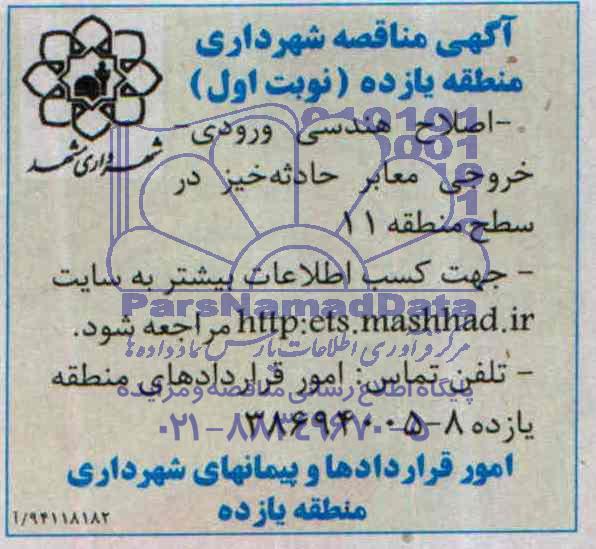 آگهی مناقصه شهرداری
منطقه یازده (نوبت اول)
شهرداری مشهد
-اصلاح هندسی ورودی-
خروجی معابر حادثه‌خیز در
سطح منطقه ۱۱
- جهت کسب اطلاعات بیشتر به سایت
http:ets.mashhad.ir مراجعه شود.
- تلفن تماس: امور قراردادهای منطقه
یازده ۸-۳۸۶۹۴۰۰۵
امور قراردادها و پیمانهای شهرداری
منطقه یازده
۹۴۱۱۸۱۸۲/آ
ParsNamadData
مرکز فرآوری اطلاعات پارس نماد داده ها
پایگاه اطلاع رسانی مناقصه و مزایده
۰۲۱-۸۸۳۴۹۶۷۰-۵